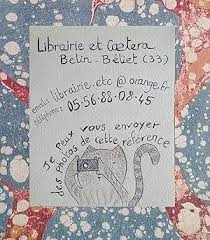 Librairie et Cætera
Belin-Béliet (33)
email: librairie.etc@orange.fr
téléphone: 05-56-88-08-45
Je peux vous envoyer
des photos de cette référence